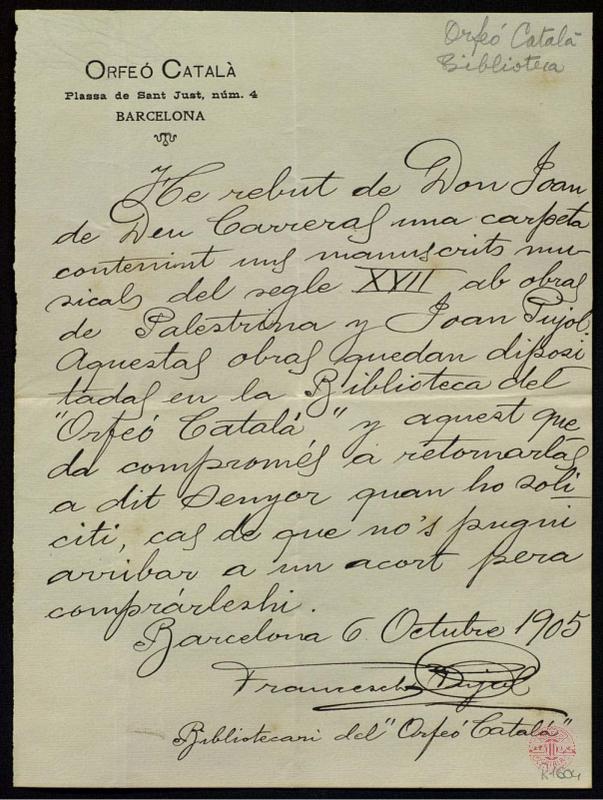 Orfeó Català
Biblioteca
ORFEÓ CATALÀ
Plassa de Sant Just, núm. 4
BARCELONA
He rebut de Don Joan
de Deu Carreras una carpeta
contenint uns manuscrits mu-
sicals del segle XVII ab obras
de Palestrina y Joan Pujol.
Aquestas obras quedan diposi
tadas en la Biblioteca del
"Orfeó Català" y aquest que
da compromés á retornarlas
a dit Senyor quan ho soli
citi, cas de que no's pugui
arribar a un acort pera
comprárleshi.
Barcelona 6 Octubre 1905
Francesch Pujol
Bibliotecari del "Orfeó Català"
R-1604